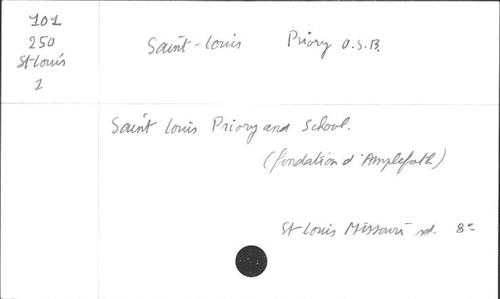 101
250
St-Louis
2
Saint-Louis Priory O.S.B.
Saint Louis Priory and School.
(fondation d'Ampleforth)
St Louis Missouri sd. 8°